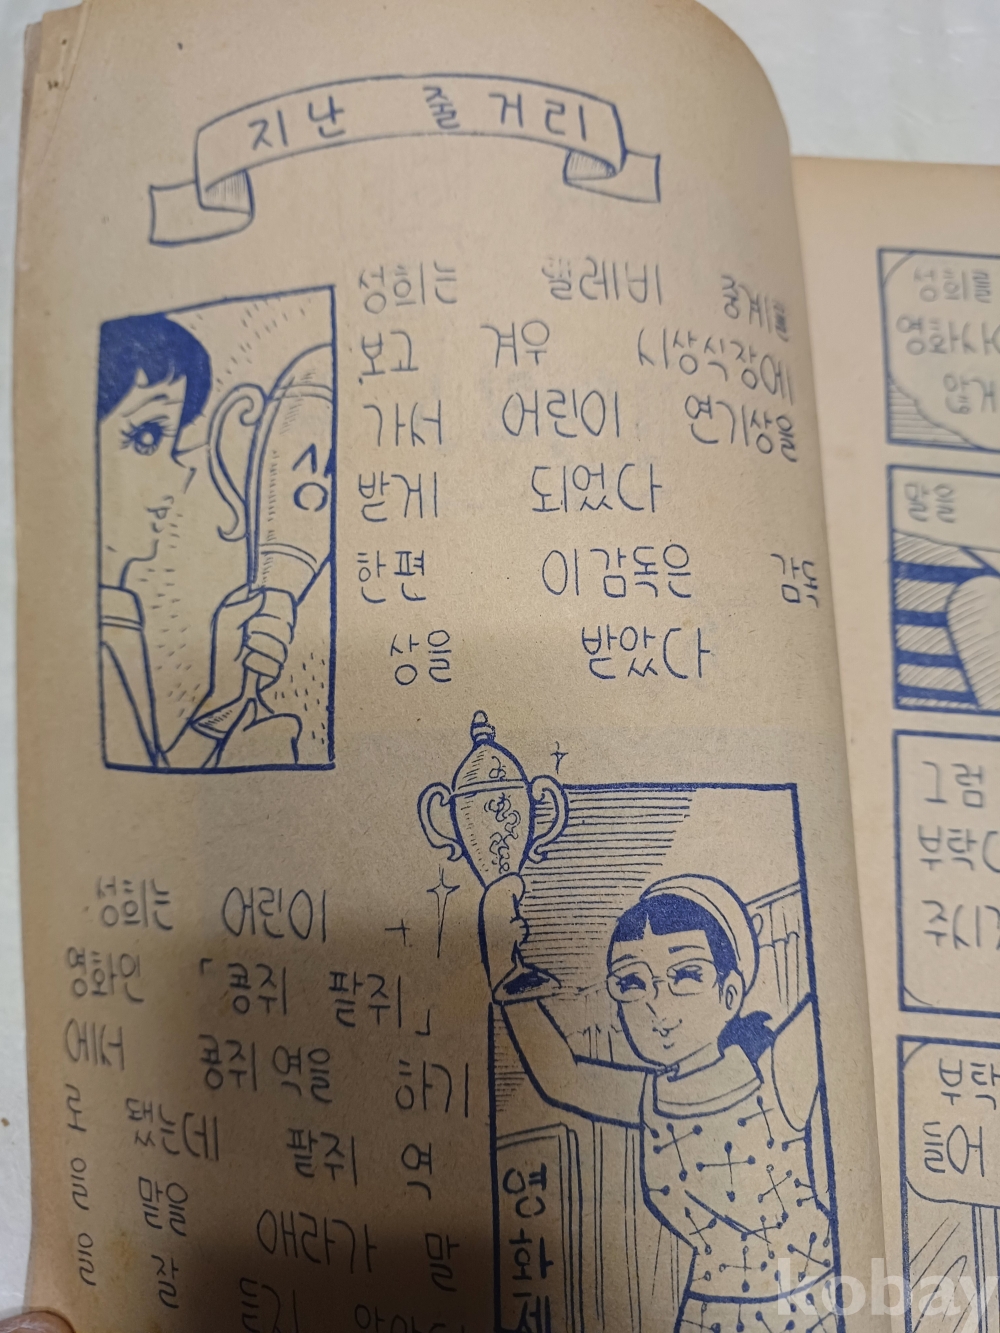 지난 줄거리
성희는 텔레비 중계를
보고 겨우 시상식장에
가서 어린이 연기상을
받게 되었다
한편 이감독은 감독
상을 받았다
상
성희는 어린이
영화인 「콩쥐 팥쥐」
에서 콩쥐 역을 하기
로 됐는데 팥쥐 역
을 맡은 애라가 말
을 잘 듣지
영화세
성희를
영화사
맡게
말을
그럼
부탁
주시
부탁
들어
kobay